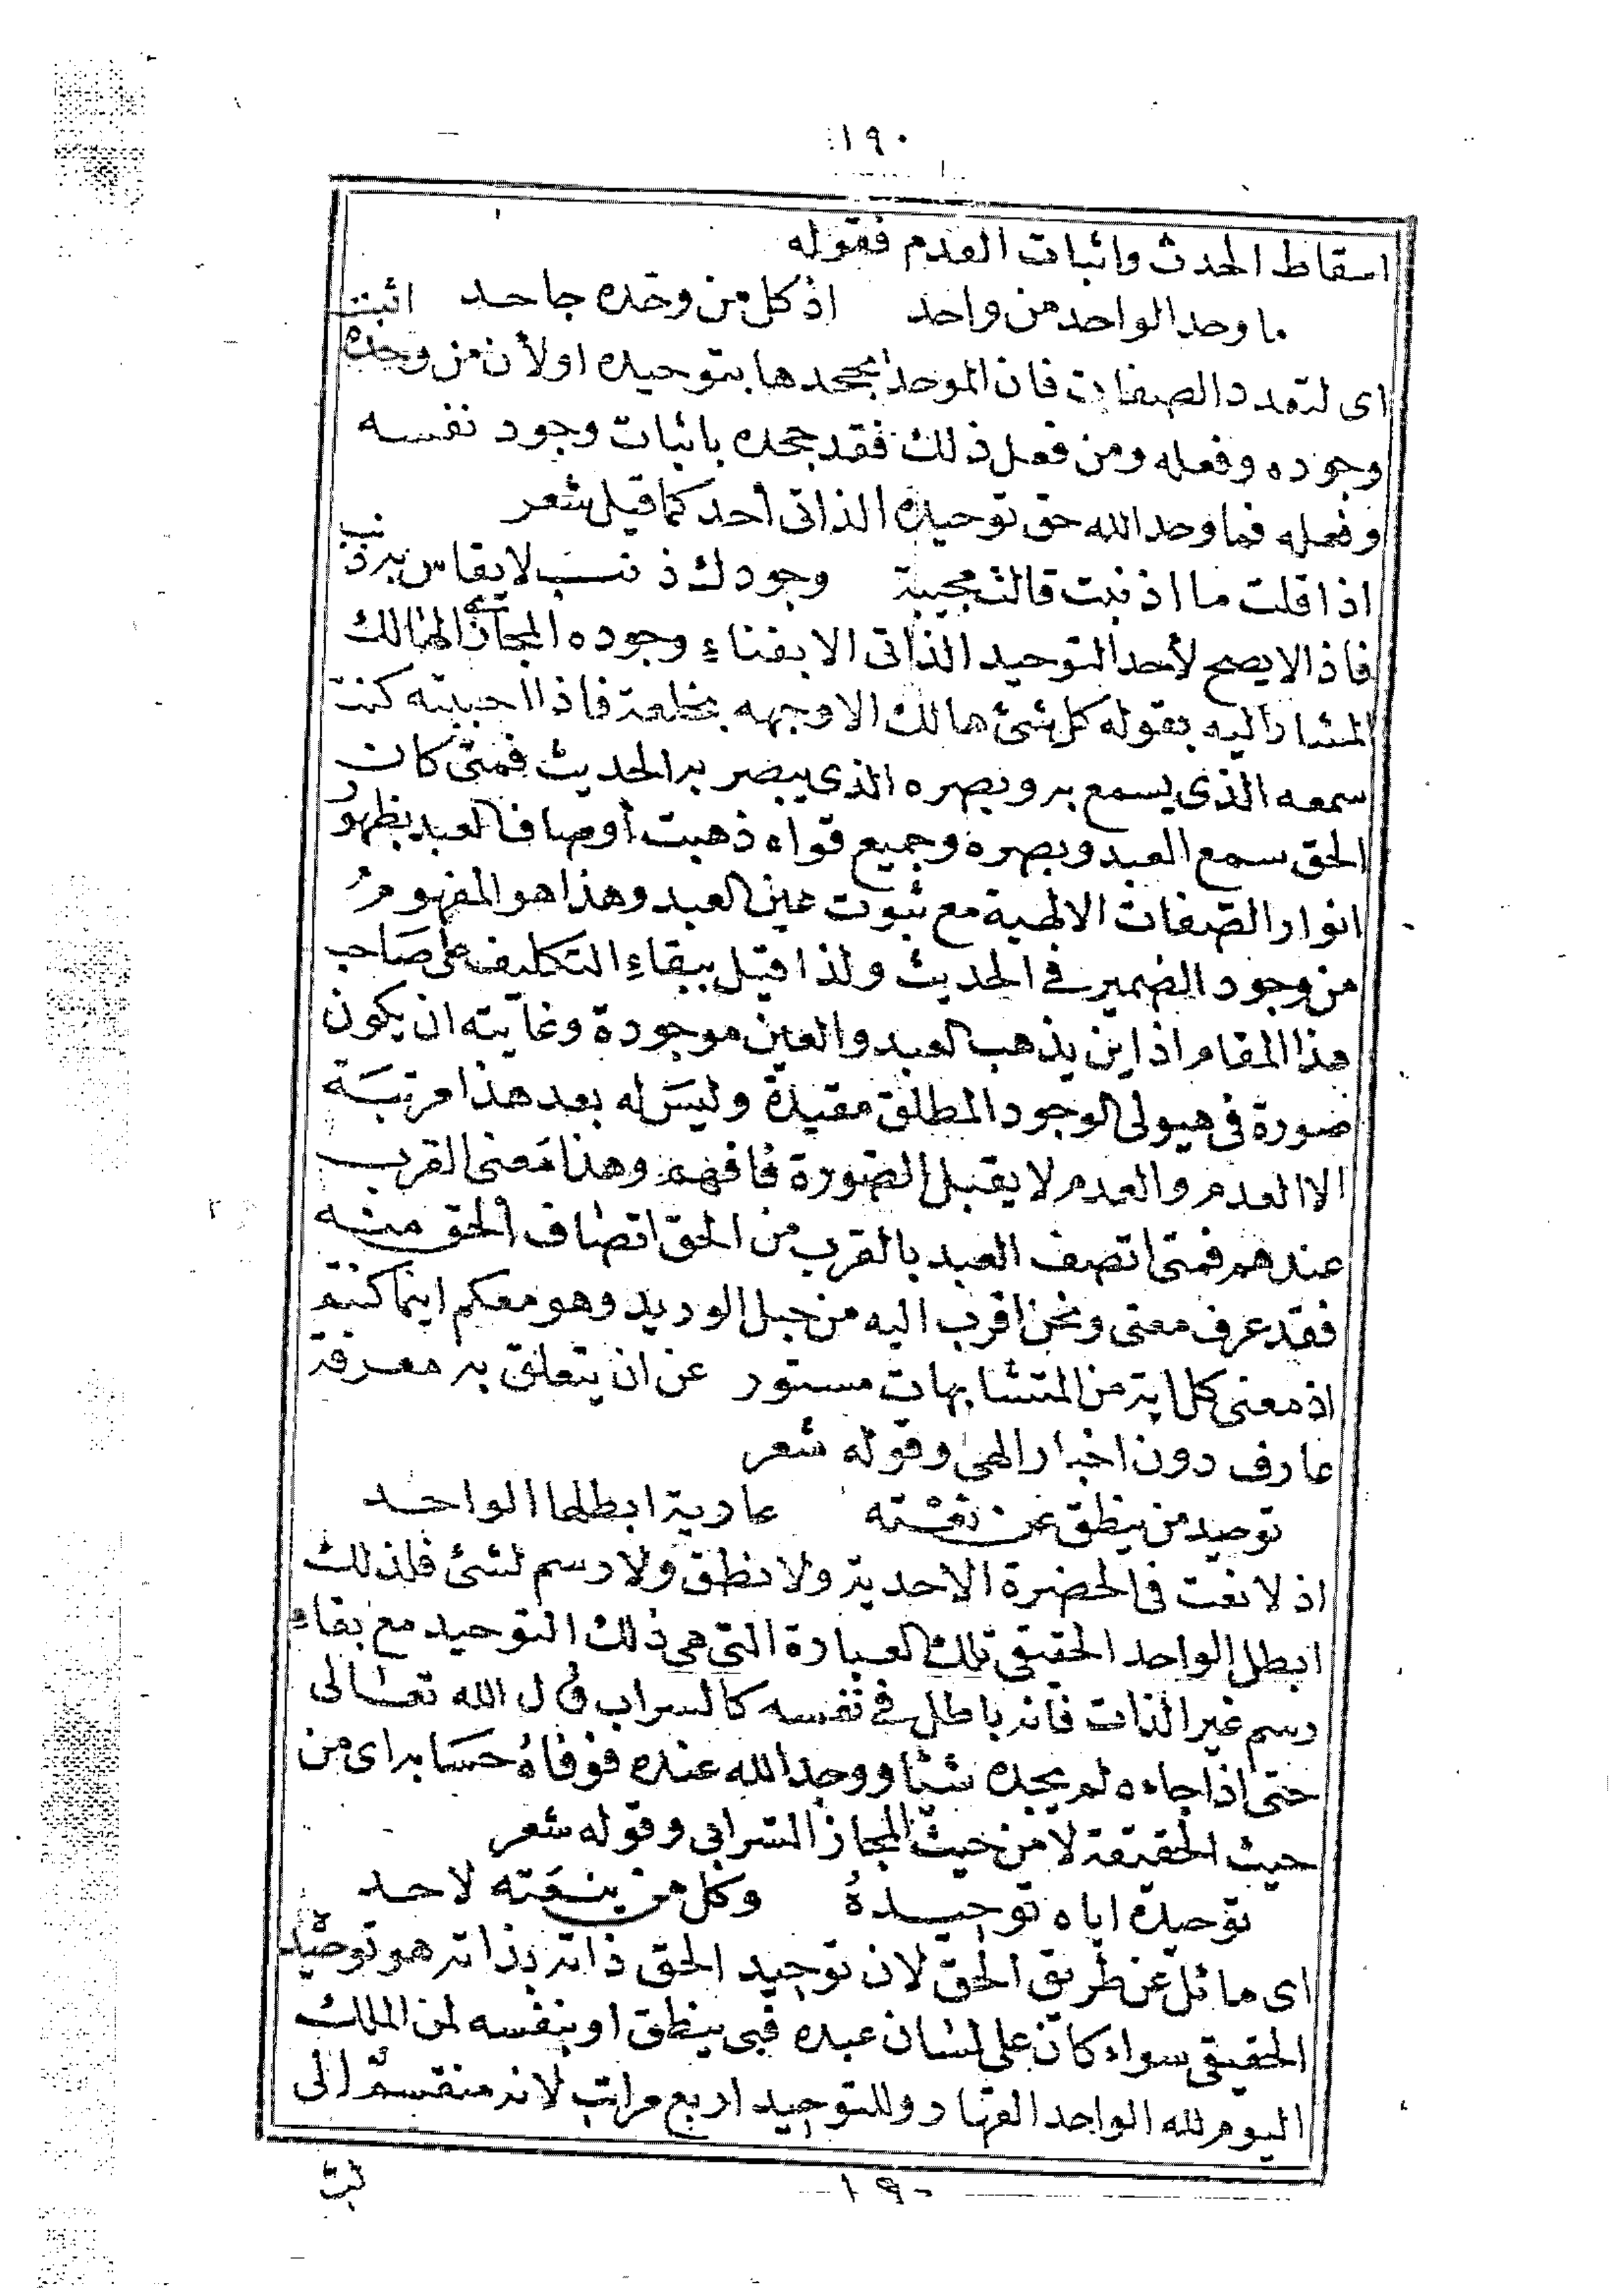 ١٩٠
اسقاط الحدث واثبات القدم فقوله
ما وحد الواحد من واحد اذ كل من وحده جاحد اثبت
اى لتعدد الصفات فان الموحد يجحدها بتوحيده اولأن من وحده
وجوده وفعله ومن فعل ذلك فقد جحده باثبات وجود نفسه
وفعله فما وحد الله حق توحيده الذاتى أحد كما قيل شعر
اذا قلت ما اذنبت قالت مجيبة وجودك ذنب لا يقاس به ذنب
فاذا لا يصح لأحد التوحيد الذاتى الا بفناء وجوده المجازى الهالك
المشار اليه بقوله كل شئ هالك الا وجهه بخلعة فاذا احببته كنت
سمعه الذى يسمع به وبصره الذى يبصر به الحديث فمتى كان
الحق سمع العبد وبصره وجميع قواه ذهبت أوصاف العبد بظهور
انوار الصفات الالهية مع ثبوت عين العبد وهذا هو المفهوم
من وجود الضمير فى الحديث ولذا قيل ببقاء التكليف على صاحب
هذا المقام اذ اين يذهب العبد والعين موجودة وغايته ان يكون
صورة فى هيولى الوجود المطلق مقيدة وليس له بعد هذا مرتبة
الا العدم والعدم لا يقبل الصورة فافهم وهذا معنى القرب
عندهم فمتى اتصف العبد بالقرب من الحق اتصاف الحق منه
فقد عرف معنى ونحن اقرب اليه من حبل الوريد وهو معكم اينما كنتم
اذ معنى كل اية من المتشابهات مستور عن ان يتعلق به معرفة
عارف دون اخبار الهى وقوله شعر
توحيد من ينطق عن نعته عارية ابطلها الواحد
اذ لا نعت فى الحضرة الاحدية ولا نطق ولا رسم لشئ فلذلك
ابطل الواحد الحقيقى تلك العبارة التى هى ذلك التوحيد مع بقاء
رسم غير الذات فانه باطل فى نفسه كالسراب قال الله تعالى
حتى اذا جاءه لم يجده شيئا ووجد الله عنده فوفاه حسابه اى من
حيث الحقيقة لا من حيث المجاز السرابى وقوله شعر
توحيده اياه توحيده وكل من ينعته لاحد
اى مائل عن طريق الحق لان توحيد الحق ذاته بذاته هو توحيده
الحقيقى سواء كان على لسان عبده فبى ينطق او بنفسه لمن الملك
اليوم لله الواحد القهار وللتوحيد اربع مراتب لانه منقسم الى
١٩٠
لب